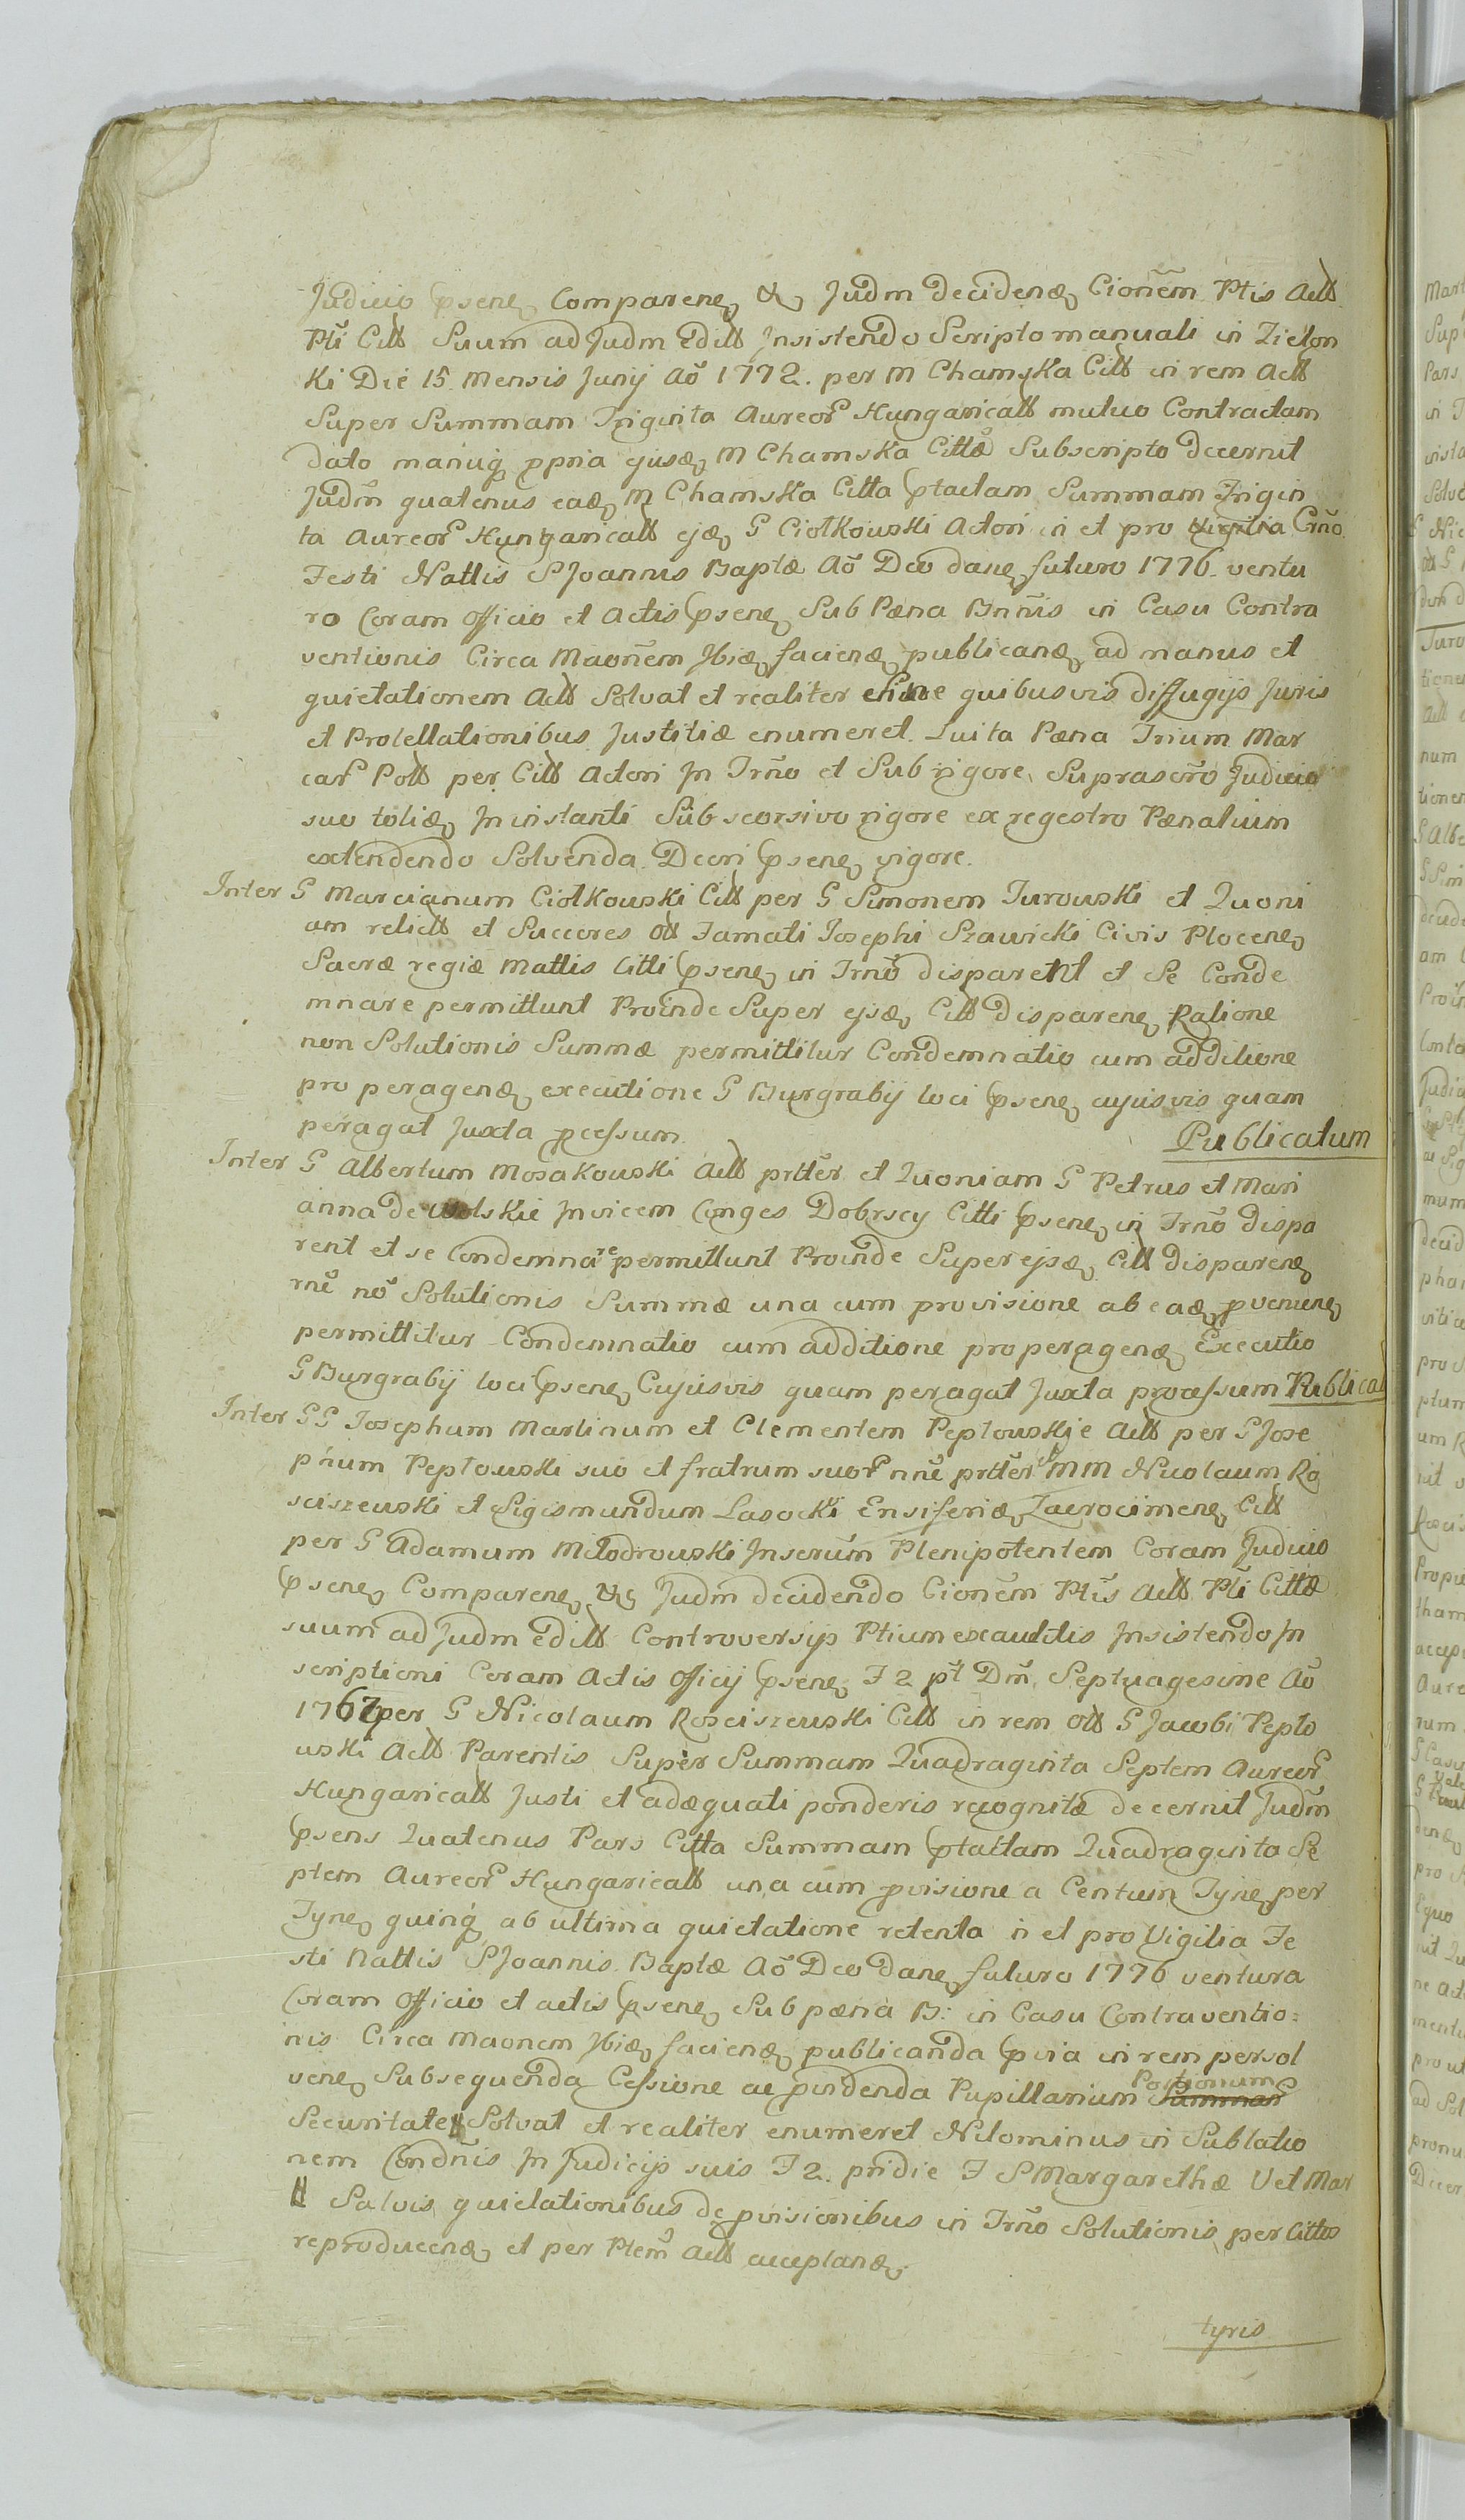 Judicio psene Comparene &c Judm decidend Cionem Ptis Act
Pti Citt Suum ad Judm Editt Insistendo Scripto manuali in Zielon
ki Die 15 Mensis Junij Aõ 1772. per M Chamska Citt in rem Act
Super Summam Triginta Aureor Hungaricalt mutuo Contractam
dato manuq ppria ejusd M Chamska Citta Subscripto decernit
Judm quatenus ead M Chamska Citta ptactam Summam Trigin
ta Aureor Hungaricalt ejd G Ciołkowski Actori in et pro Vigilia Crño
Festi Nattis S Joannis Baptæ Aõ Deo dane futuro 1776. ventu
ro Coram Officio et Actis psene Sub Pæna Bñnis in Casu Contra
ventionis Circa Maonem Ibid faciend publicand ad manus et
quietationem Act Solvat et realiter sine quibusvis diffugijs Juris
et Protellationibus Justitiæ enumeret. Luita Pæna Trium Mar
car Poll per Citt Actori In Trño et Sub rigore Suprascrõ Judicio
suo tolid In instanti Sub seorsivo rigore ex regestro Pænalium
extendendo Solvenda Decri psene vigore.
Inter G Marcianum Ciołkowski Citt per G Simonem Turowski et Quoni
am relict et Succores olt Famati Josephi Szawicki Civis Plocene
Sacræ regiæ Mattis Citti psene in Trño disparent et Se Conde
mnare permittunt Proinde Super ejsd Citt disparene Ratione
non Solutionis Summæ permittitur Condemnatio cum additione
pro peragend executione G Burgrabij loci psene cujusvis quam
peragat Juxta pcessum. Publicatum
Inter G Albertum Mosakowski Act prtter et Quoniam G Petrus et Mari
anna de Wolskie Invicem Conges Dobrscy Citti psene in Trño dispa
rent et se Condemnare permittunt Proinde Super ejsd Citt disparene
rnẽ nõ Solutionis Summæ una cum provisione ab ead pveniene
permittitur Condemnatio cum additione pro peragend Executio
G Burgrabij loci psene Cujusvis quam peragat Juxta processum Publicat
Inter GG Josephum Martinum et Clementem Peptowskje Act per G Jose
phum Peptowski suo et fratrum suor nñe prtter MM Nicolaum Ro
sciszewski et Sigismundum Lasocki Ensiferid Zacrocimene Citt
per G Adamum Młodrowski Inserum Plenipotentem Coram Judicio
psene Comparene &c Judm decidendo Cionem Ptis Act Pti Cittæ
suum ad Judm Edilt Controversijs Ptium exauditis Insistendo In
scriptioni Coram Actis Officij psene F 2 pt Dm Septuagesime Aõ
1767 per G Nicolaum Rosciszewski Citt in rem olt G Jacobi Pepto
wski Act Parentis Super Summam Quadraginta Septem Aureor
Hungaricalt Justi et adæquati ponderis recognitæ decernit Judm
psens Quatenus Pars Citta Summam ptactam Quadraginta Se
ptem Aureor Hungaricalt una cum pvisione a Centum Tyne per
Tyne quinq ab ultima quietatione retenta in et pro Vigilia Fe
sti Nattis S Joannis Baptæ Aõ Deo dane futuro 1776 ventura
Coram Officio et actis psene Sub pæna B: in Casu Contraventio=
nis Circa Maonem Ibid faciend publicanda pvia in rem persol
vene Subsequenda Cessione ac pvidenda Pupillarium Portionum Summar
Securitate Solvat et realiter enumeret Nilominus in Sublatio
nem Condñis In Judicijs suis F 2. pridie F S Margarethæ V et Mar
Salvis quietationibus de pvisionibus in Trño Solutionis per Cittos
reproducend et per Ptem Act acceptand.
tyris